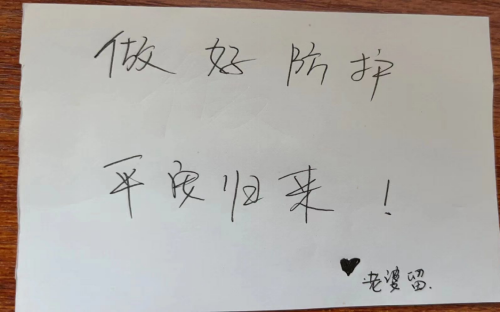 做好防护
平安归来！
♥老婆留.